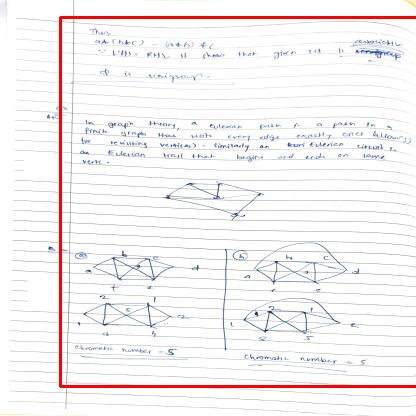 Thus
a*(b*c) = (a*b)*c
∵ LHS = RHS. It shows that given set is associative
It is semigroup.
In graph theory, a Eulerian path is a path in a
finite graph that visits every edge exactly once (allowing
for revisiting vertices). Similarly an Eulerian circuit is
an Eulerian trail that begins and ends on same
vertex.
(a)
b c
a d
f e
2 1
5
1 2
3 4
Chromatic number = 5
(b)
b c
a d
e
2 1
1
2 5
Chromatic number = 5